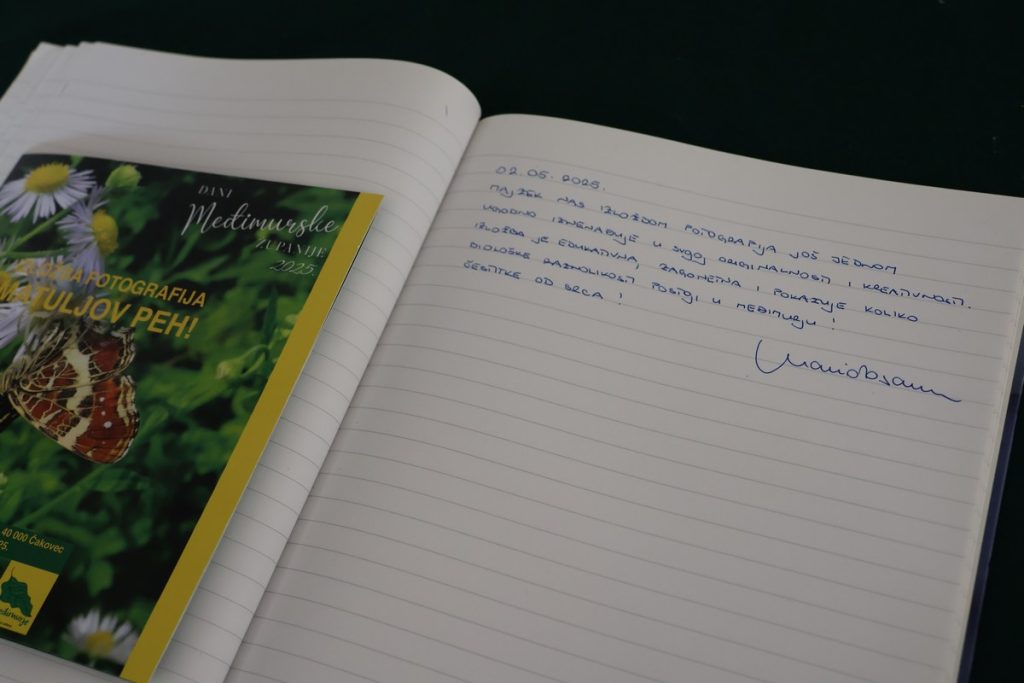 DANI
Međimurske
ŽUPANIJE
2025.
FOTOGRAFIJA
MATULJOV PEH!
40 000 Čakovec
25.
02.05.2025.
NAJŽEK NAS IZLOŽBOM FOTOGRAFIJA JOŠ JEDNOM
UGODNO IZNENAĐUJE U SVOJ ORIGINALNOSTI I KREATIVNOSTI.
IZLOŽBA JE EDUKATIVNA, ZAGONETNA I POKAZUJE KOLIKO
BIOLOŠKE RAZNOLIKOSTI POSTOJI U MEĐIMURJU!
ČESTITKE OD SRCA!